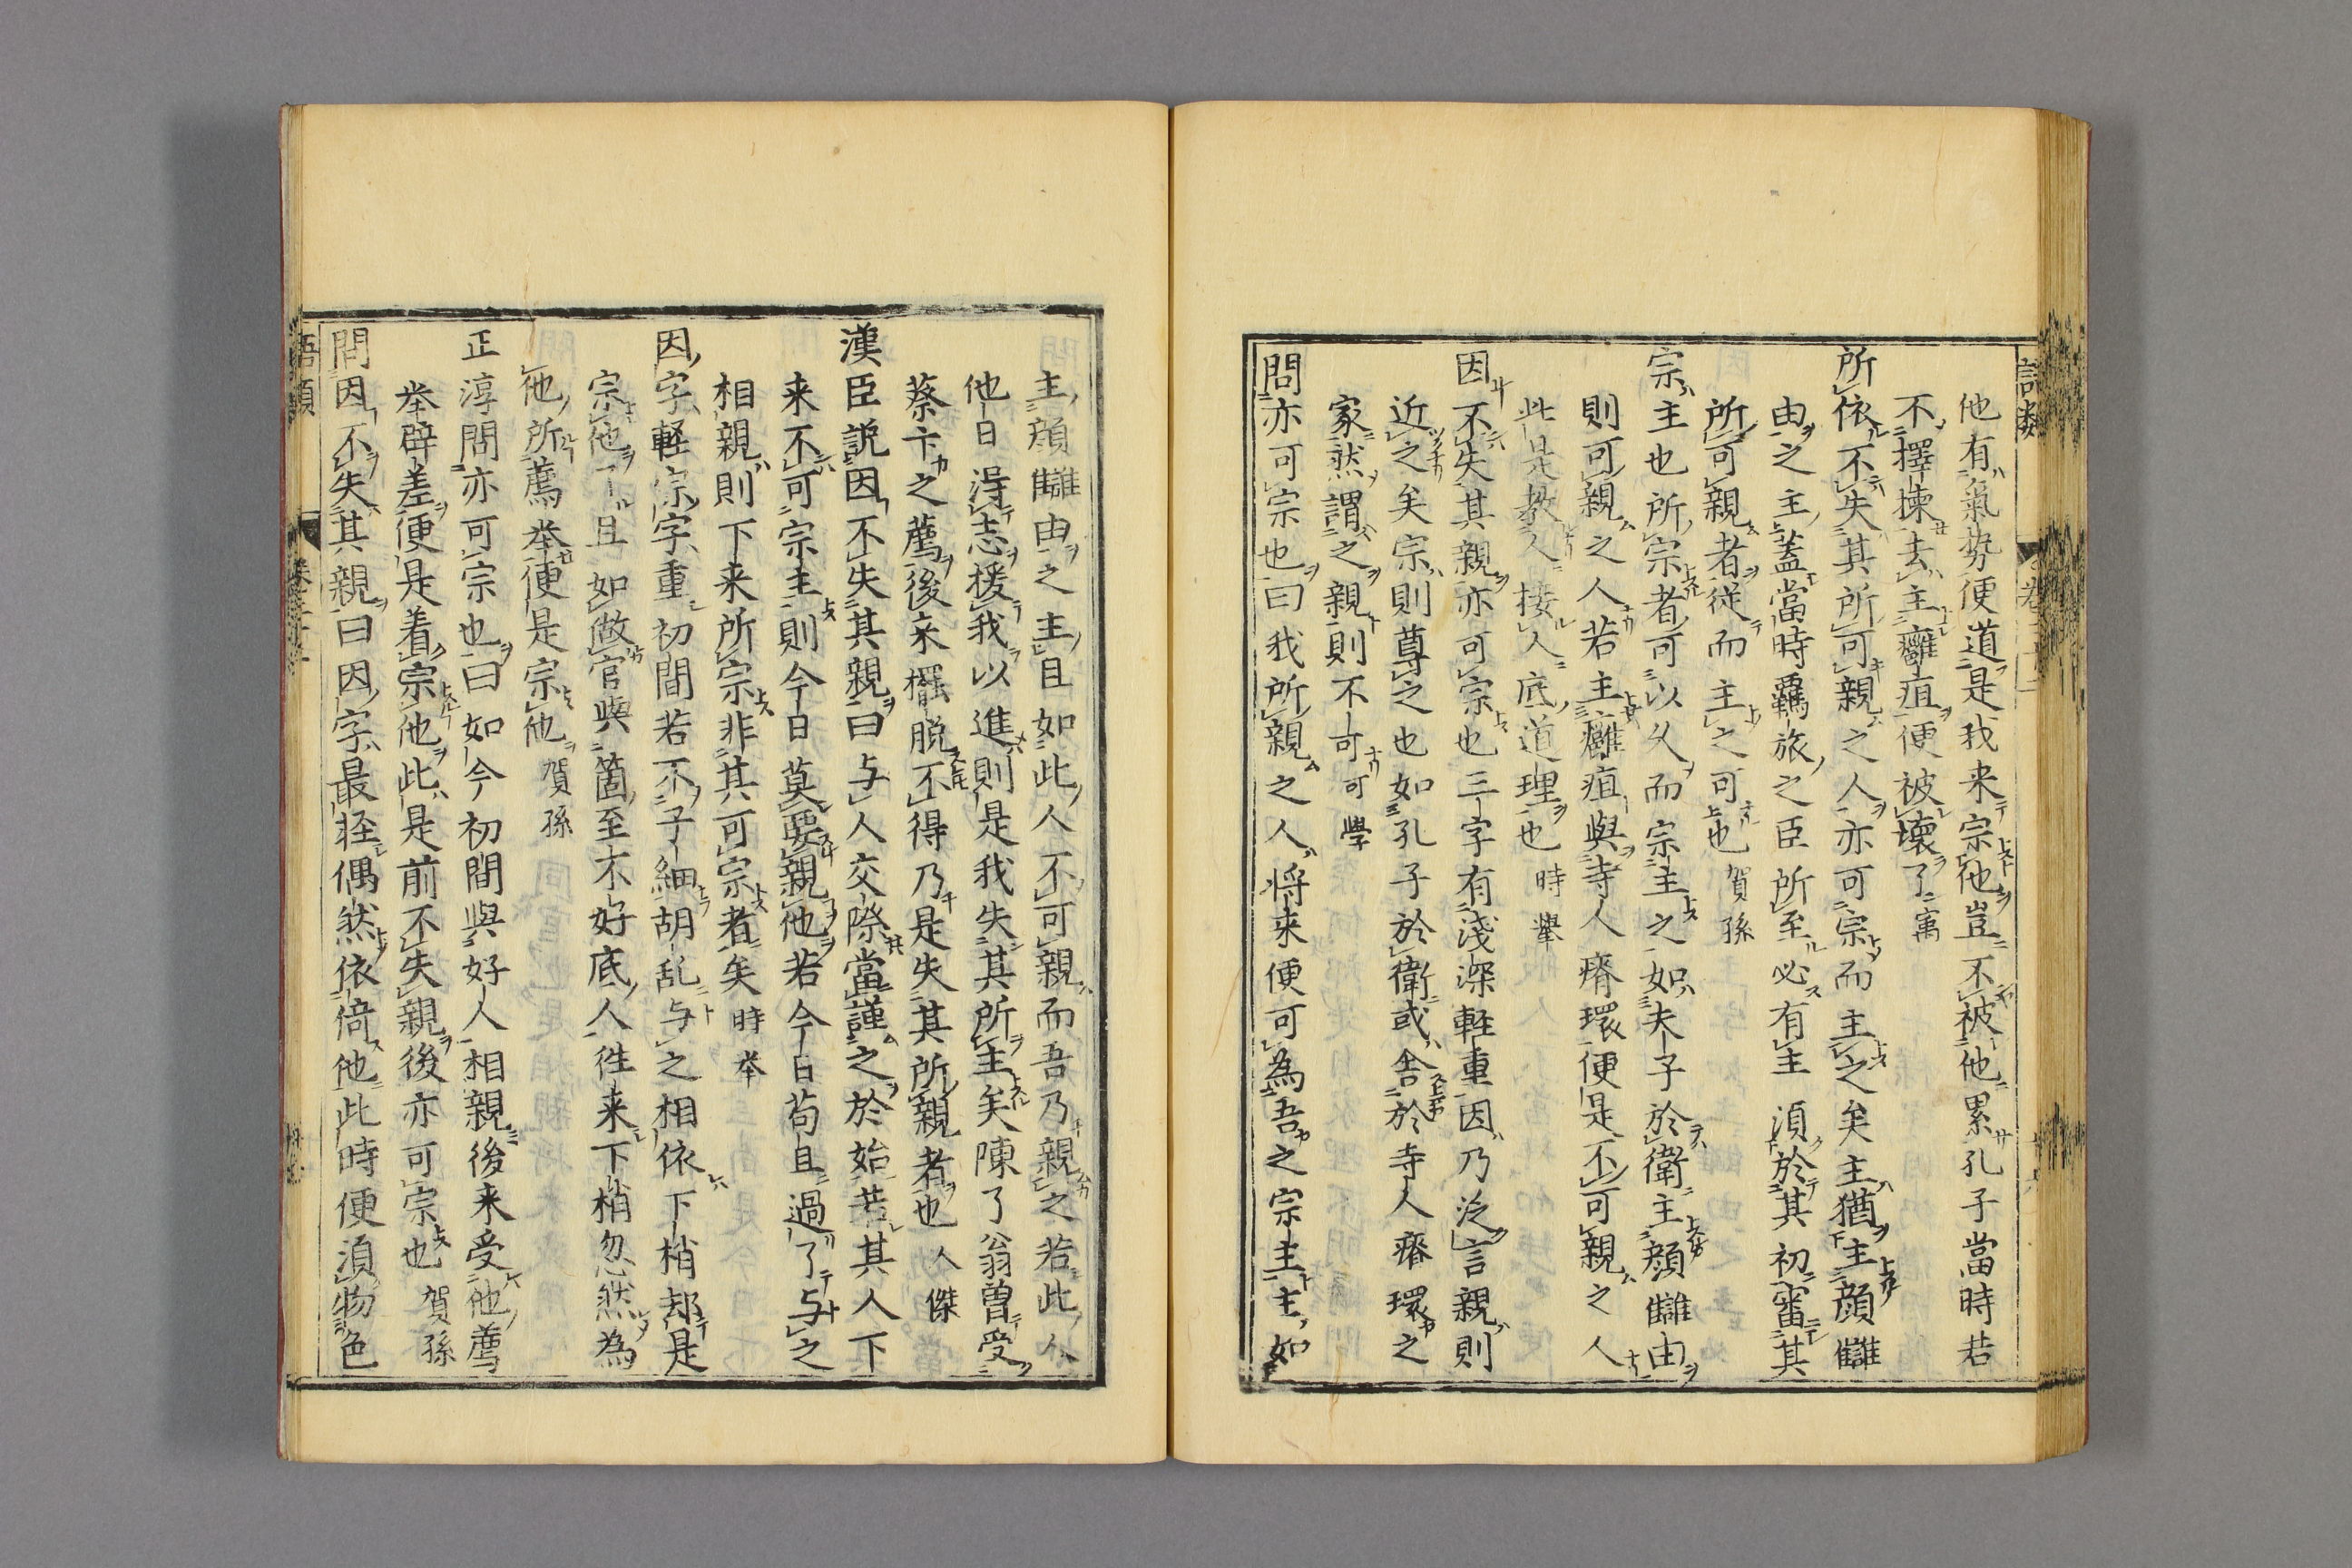 他有氣勢便道是我来宗他豈不被他累孔子當時若
不擇揀去主癰疽便被壞了㝢
所依不失其所可親之人亦可宗而主之矣主猶主顔讎
由之主蓋當時羈旅之臣所至必有主須於其初審其
所可親者從而主之可也賀孫
宗主也所宗者可以久而宗主之如夫子於衛主顔讎由
則可親之人若主癰疽與寺人瘠環便是不可親之人
此是教人接人底道理也時舉
因不失其親亦可宗也三字有淺深軽重因乃泛言親則
近之矣宗則尊之也如孔子於衛或舎於寺人瘠環之
家然謂之親則不可可學
問亦可宗也曰我所親之人将来便可為吾之宗主主如
主顔讎由之主且如此人不可親而吾乃親之若此人
他日得志援我以進則是我失其所主矣陳了翁曽受
蔡卞之薦後来擺脱不得乃是失其所親者也人傑
漢臣説因不失其親曰与人交際當謹之於始若其人下
来不可宗主則今日莫要親他若今日苟且過了与之
相親則下来所宗非其可宗者矣時举
因字軽宗字重初間若不子細胡乱与之相依下梢却是
宗他了且如做官與箇至不好底人徃来下梢忽然為
他所薦举便是宗他賀孫
正淳問亦可宗也曰如今初間與好人相親後来受他薦
举辟差便是着宗他此是前不失親後亦可宗也賀孫
問因不失其親曰因字最軽偶然依倚他此時便須物色
語類